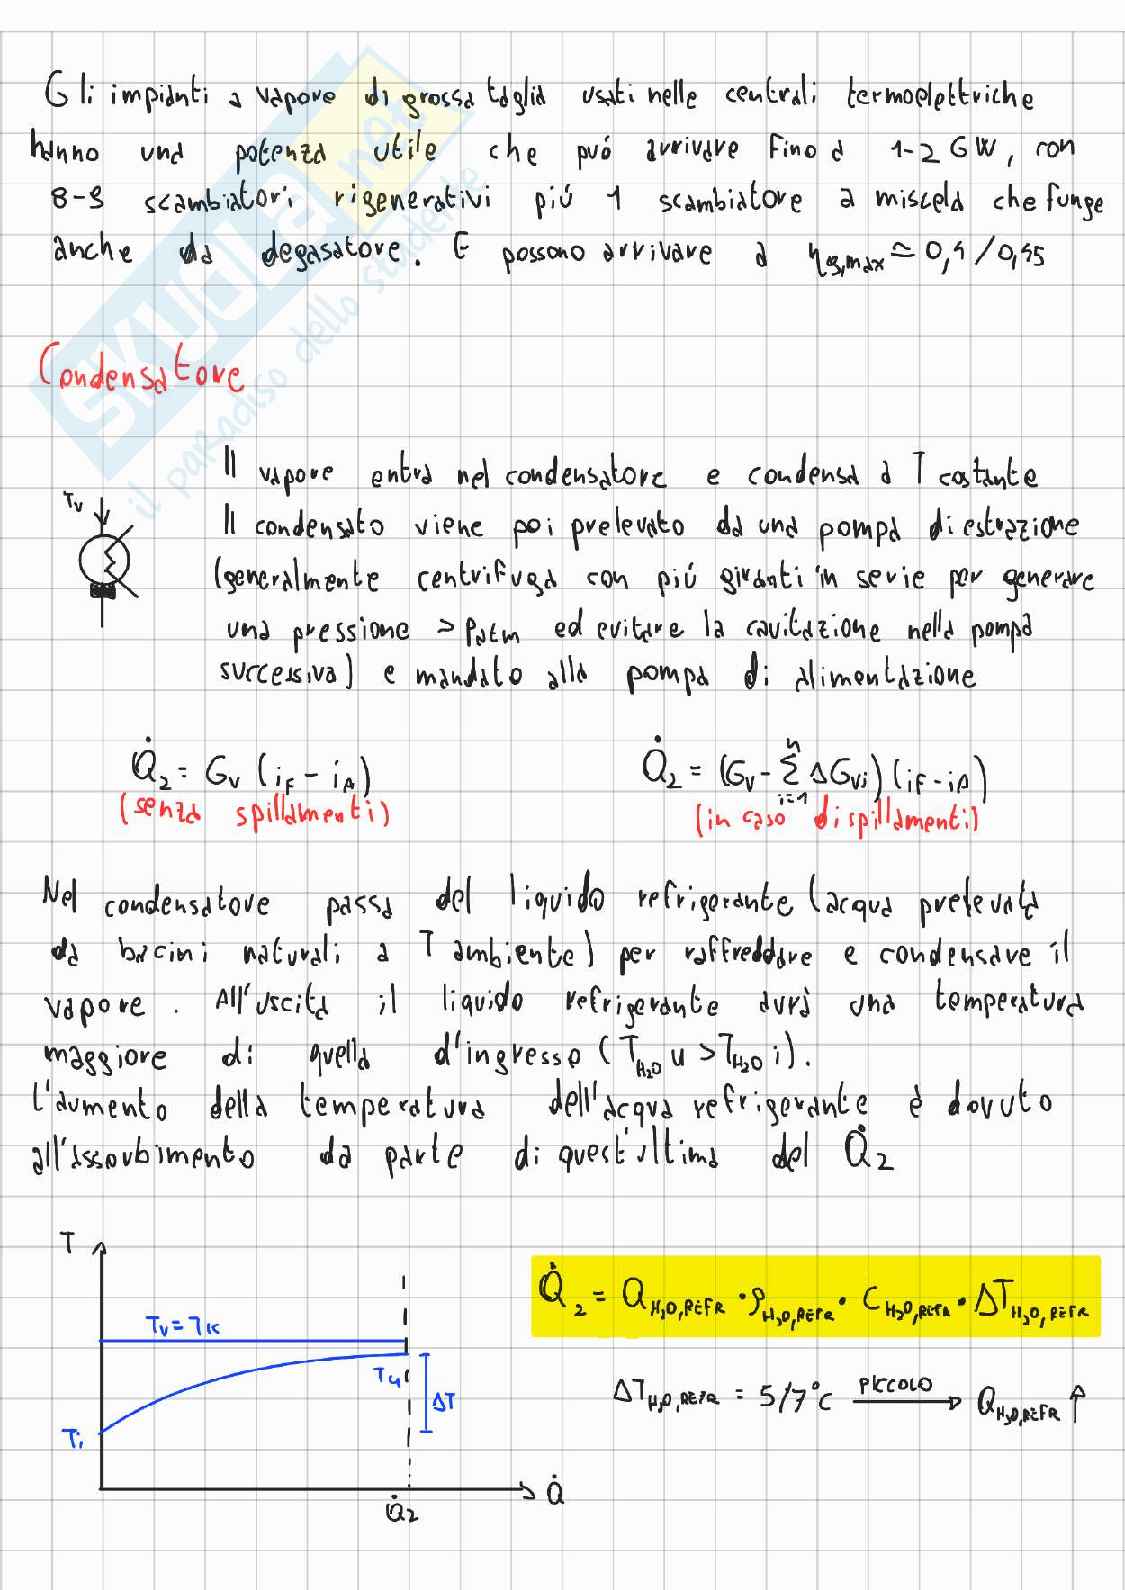 Gli impianti a vapore di grossa taglia usati nelle centrali termoelettriche
hanno una potenza utile che può arrivare fino a 1-2 GW, con
8-9 scambiatori rigenerativi più 1 scambiatore a miscela che funge
anche da degasatore. E possono arrivare a η g,max ≃ 0,4/0,45
Condensatore
Il vapore entra nel condensatore e condensa a T costante
Tv
Il condensato viene poi prelevato da una pompa di estrazione
(generalmente centrifuga con più giranti in serie per generare
una pressione > Patm ed evitare la cavitazione nella pompa
successiva) e mandato alla pompa di alimentazione
Q̇2 = Gv (iF - iA)
(senza spillamenti)
Q̇2 = (Gv - Σ i=1 n ΔGvi) (iF - iA)
(in caso di spillamenti)
Nel condensatore passa del liquido refrigerante (acqua prelevata
da bacini naturali a T ambiente) per raffreddare e condensare il
vapore. All'uscita il liquido refrigerante avrà una temperatura
maggiore di quella d'ingresso (TH2O u > TH2O i).
L'aumento della temperatura dell'acqua refrigerante è dovuto
all'assorbimento da parte di quest'ultima del Q̇2
T
Tv = Tk
Tu
ΔT
Ti
Q̇
Q̇2
Q̇2 = QH2O,REFR · ρH2O,REFR · CH2O,REFR · ΔTH2O,REFR
ΔTH2O,REFR = 5/7°C PICCOLO → QH2O,REFR ↑
skuola.net
il paradiso dello studente